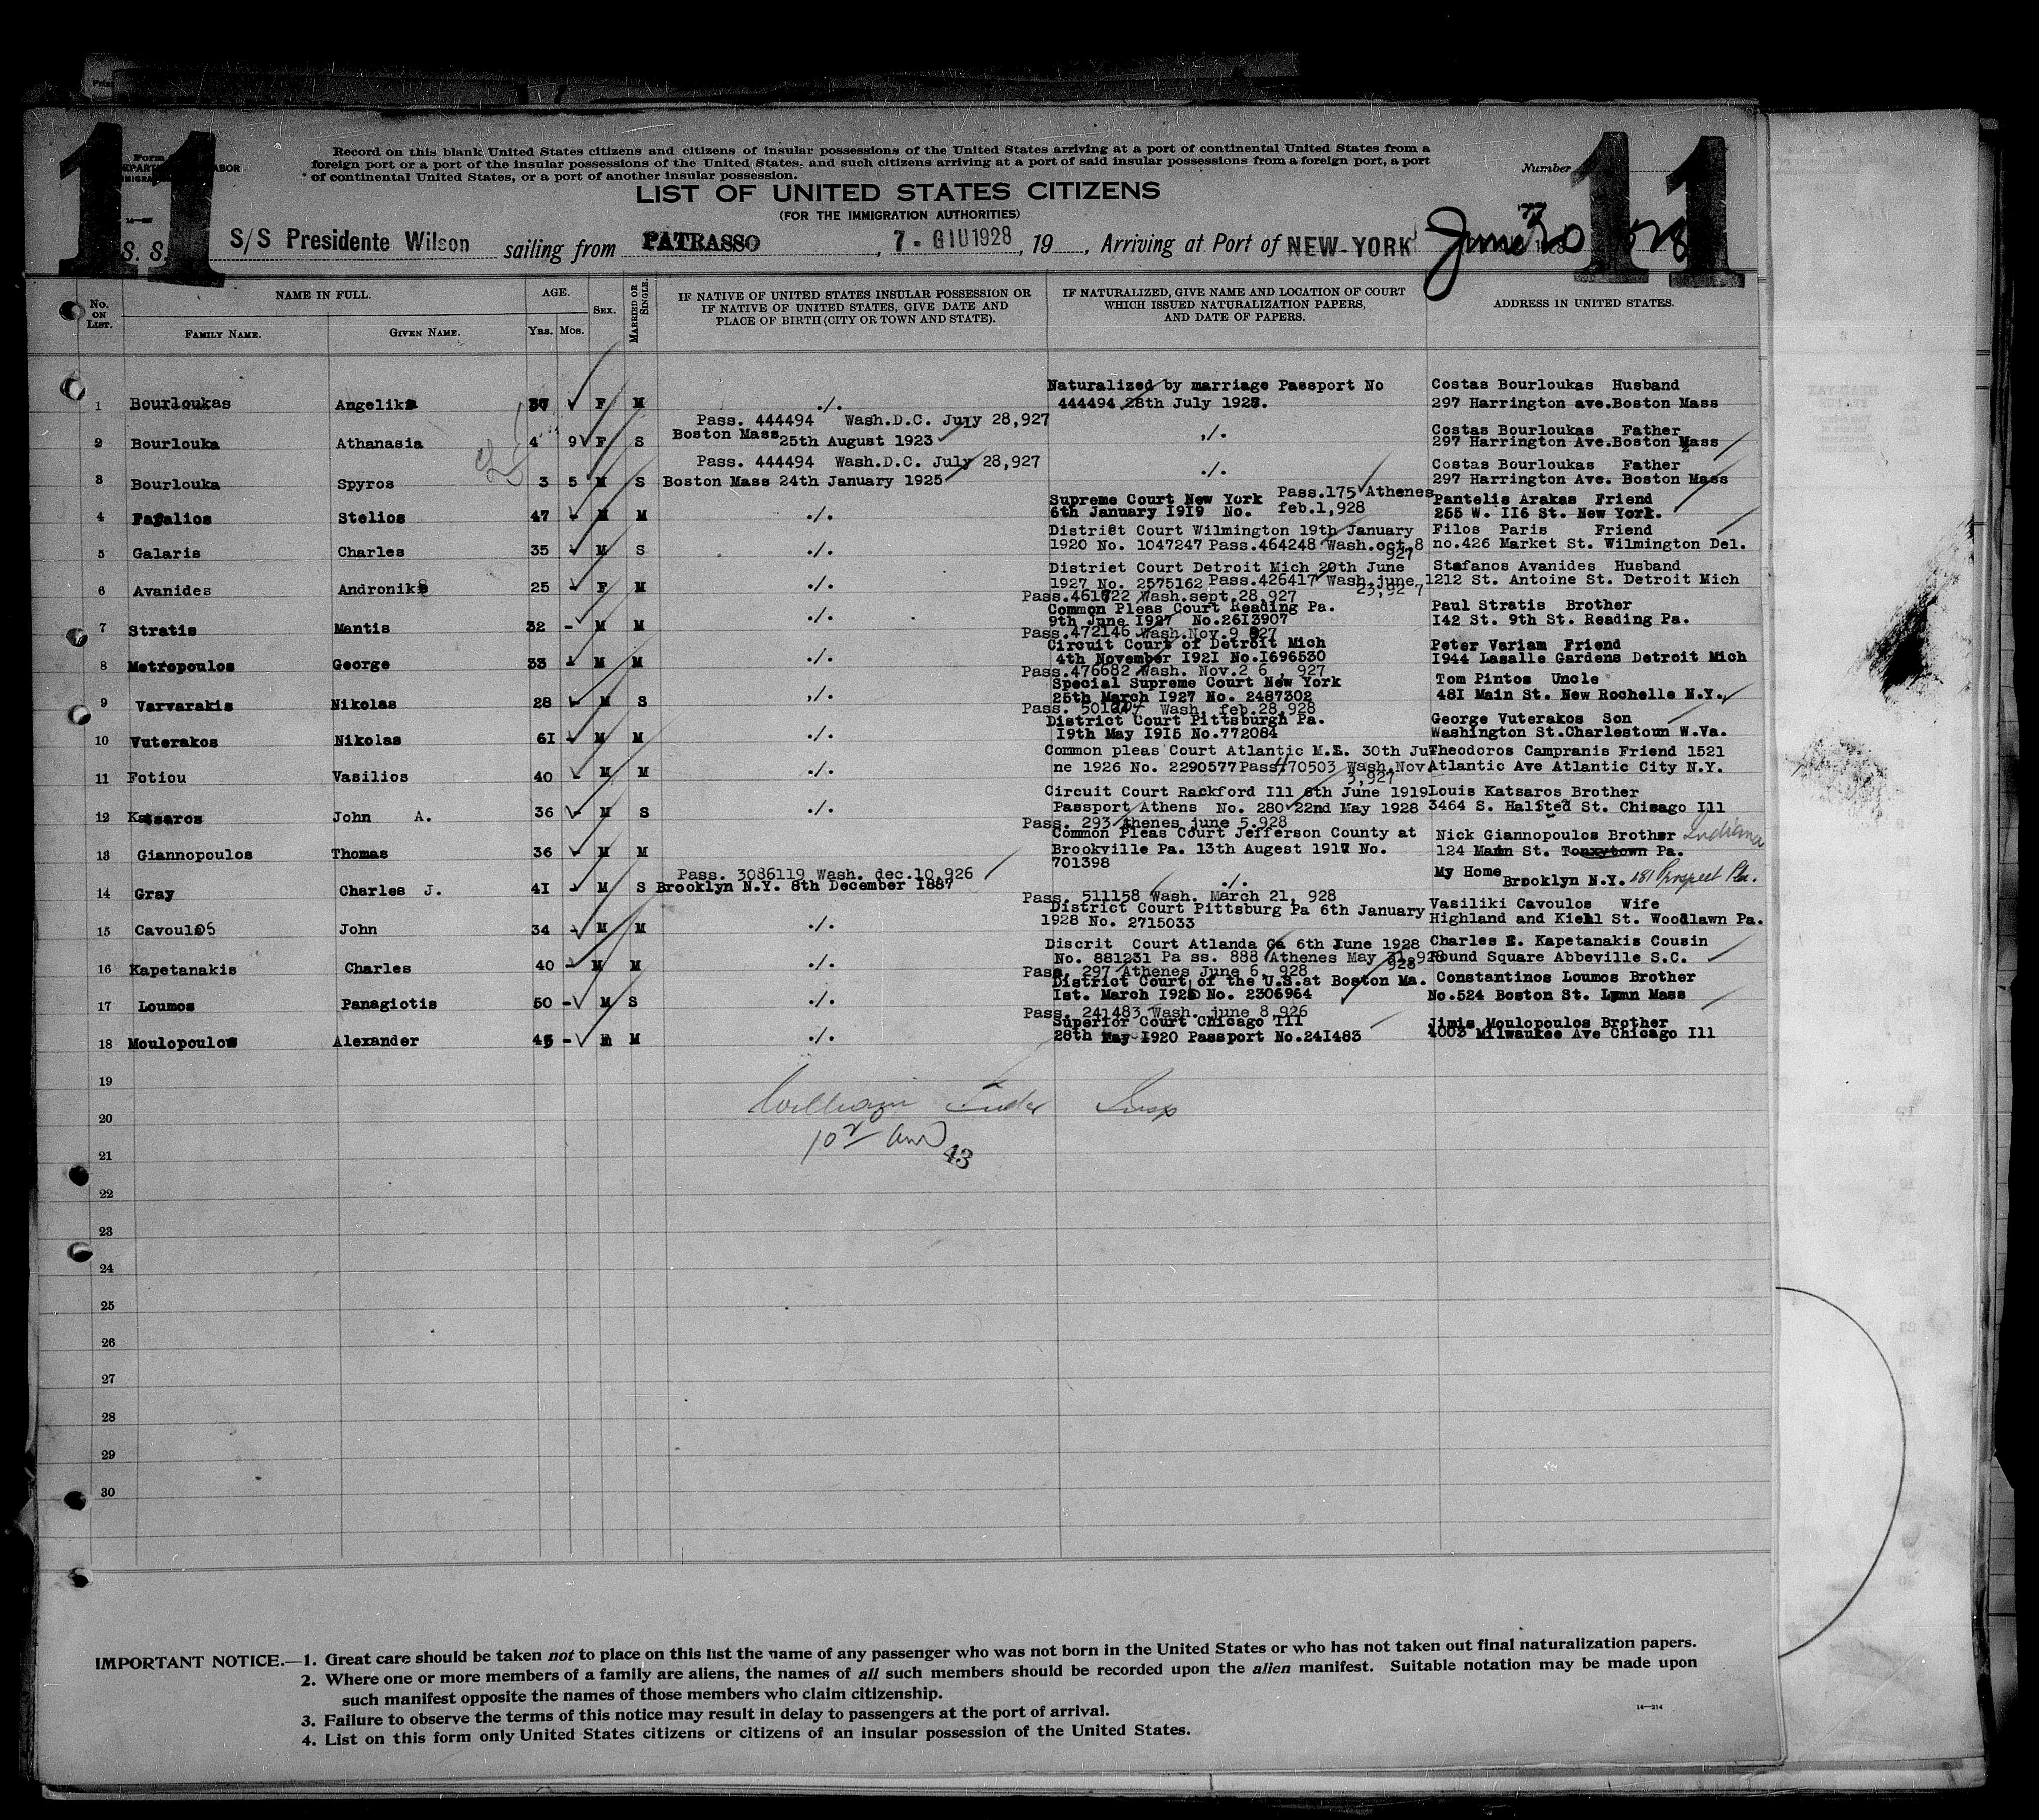 11
11
Record on this blank United States citizens and citizens of insular possessions of the United States arriving at a port of continental United States from a
foreign port or a port of the insular possessions of the United States, and such citizens arriving at a port of said insular possessions from a foreign port, a port
of continental United States, or a port of another insular possession.
Form
Number
LIST OF UNITED STATES CITIZENS
(FOR THE IMMIGRATION AUTHORITIES)
S. S. S/S Presidente Wilson sailing from PATRASSO, 7 - GIU 1928, 19, Arriving at Port of NEW-YORK June 20
No. ON LIST.
NAME IN FULL.
FAMILY NAME. GIVEN NAME.
AGE.
YRS. MOS.
SEX.
MARRIED OR SINGLE.
IF NATIVE OF UNITED STATES INSULAR POSSESSION OR
IF NATIVE OF UNITED STATES, GIVE DATE AND
PLACE OF BIRTH (CITY OR TOWN AND STATE).
IF NATURALIZED, GIVE NAME AND LOCATION OF COURT
WHICH ISSUED NATURALIZATION PAPERS,
AND DATE OF PAPERS.
ADDRESS IN UNITED STATES.
Naturalized by marriage Passport No Costas Bourloukas Husband
1 Bourloukas Angelika 37 F M ./. 444494 28th July 1928. 297 Harrington ave.Boston Mass
Pass. 444494 Wash.D.C. July 28,927
Boston Mass 25th August 1923 Costas Bourloukas Father
2 Bourlouka Athanasia 4 9 F S ./. 297 Harrington Ave.Boston Mass
Pass. 444494 Wash.D.C. July 28,927 Costas Bourloukas Father
3 Bourlouka Spyros 3 5 M S Boston Mass 24th January 1925 ./. 297 Harrington Ave. Boston Mass
Supreme Court New York Pass.175 Athenes Pantelis Arakas Friend
4 Stelios 47 - M M ./. 6th January 1919 No. feb.1,928 255 W. 116 St. New York.
District Court Wilmington 19th January Filos Paris Friend
5 Galaris Charles 35 - M S ./. 1920 No. 1047247 Pass.464248 Wash.oct.8 927 no.426 Market St. Wilmington Del.
District Court Detroit Mich 20th June Stefanos Avanides Husband
6 Avanides 25 - F M ./. 1927 No. 2575162 Pass.426417 Wash june 23,927 1212 St. Antoine St. Detroit Mich
Pass.461822 Wash.sept.28,927
Common Pleas Court Reading Pa. Paul Stratis Brother
7 Stratis Mantis 32 - M M ./. 9th June 1927 No.2613907 142 St. 9th St. Reading Pa.
Pass.472146 Wash.Nov.9 927
Circuit Court of Detroit Mich Peter Variam Friend
8 Metropoulos George 33 - M M ./. 4th November 1921 No.1696530 1944 Lasalle Gardens Detroit Mich
Pass.476682 Wash. Nov.26, 927
Special Supreme Court New York Tom Pintos Uncle
9 Varvarakis Nikolas 28 - M S ./. 25th March 1927 No. 2487302 481 Main St. New Rochelle N.Y.
Pass. Wash. feb.28,928
District Court Pittsburgh Pa. George Vuterakos Son
10 Vuterakos Nikolas 61 - M M ./. 19th May 1915 No.772084 Washington St.Charlestoun W.Va.
Common pleas Court Atlantic 30th Ju Theodoros Campranis Friend 1521
11 Fotiou Vasilios 40 - M M ./. ne 1926 No. 2290577 Pass. 70503 Wash.Nov 3,927 Atlantic Ave Atlantic City N.Y.
Circuit Court Rackford Ill 6th June 1919 Louis Katsaros Brother
12 Katsaros John A. 36 - M S ./. Passport Athens No. 280 22nd May 1928 3464 S. Halsted St. Chicago Ill
Pass. 293 Athenes june 5.928
Common Pleas Court Jefferson County at Nick Giannopoulos Brother Indiana
13 Giannopoulos Thomas 36 - M M Brookville Pa. 13th Augest 1917 No. 124 Main St. Pa.
701398
Pass. 3086119 Wash. dec.10,926 My Home
14 Gray Charles J. 41 - M S Brooklyn N.Y. 8th December 1887 ./. Brooklyn N.Y. 181 Prospect Pla.
Pass. 511158 Wash. March 21, 928
District Court Pittsburg Pa 6th January Vasiliki Cavoulos Wife
15 Cavoulos John 34 - M M ./. 1928 No. 2715033 Highland and Kiehl St. Woodlawn Pa.
Discrit Court Atlanda Ga 6th June 1928 Charles E. Kapetanakis Cousin
16 Kapetanakis Charles 40 - M M ./. No. 881231 Pa ss. 888 Athenes May 31,928 Round Square Abbeville S.C.
Pass. 297 Athenes June 6, 928
District Court of the U.S.at Boston Ma. Constantinos Loumos Brother
17 Loumos Panagiotis 50 - M S ./. Ist. March 1925 No. 2306964 No.524 Boston St. Lynn Mass
Pass. 241483 Wash. june 8,926
Superior Court Chicago Ill Jimis Moulopoulos Brother
18 Moulopoulos Alexander 45 - m M ./. 28th May 1920 Passport No.241483 4003 Milwaukee Ave Chicago Ill
19
20
21
43
22
23
24
25
26
27
28
29
30
IMPORTANT NOTICE.—1. Great care should be taken not to place on this list the name of any passenger who was not born in the United States or who has not taken out final naturalization papers.
2. Where one or more members of a family are aliens, the names of all such members should be recorded upon the alien manifest. Suitable notation may be made upon
such manifest opposite the names of those members who claim citizenship.
3. Failure to observe the terms of this notice may result in delay to passengers at the port of arrival.
4. List on this form only United States citizens or citizens of an insular possession of the United States.
14—214